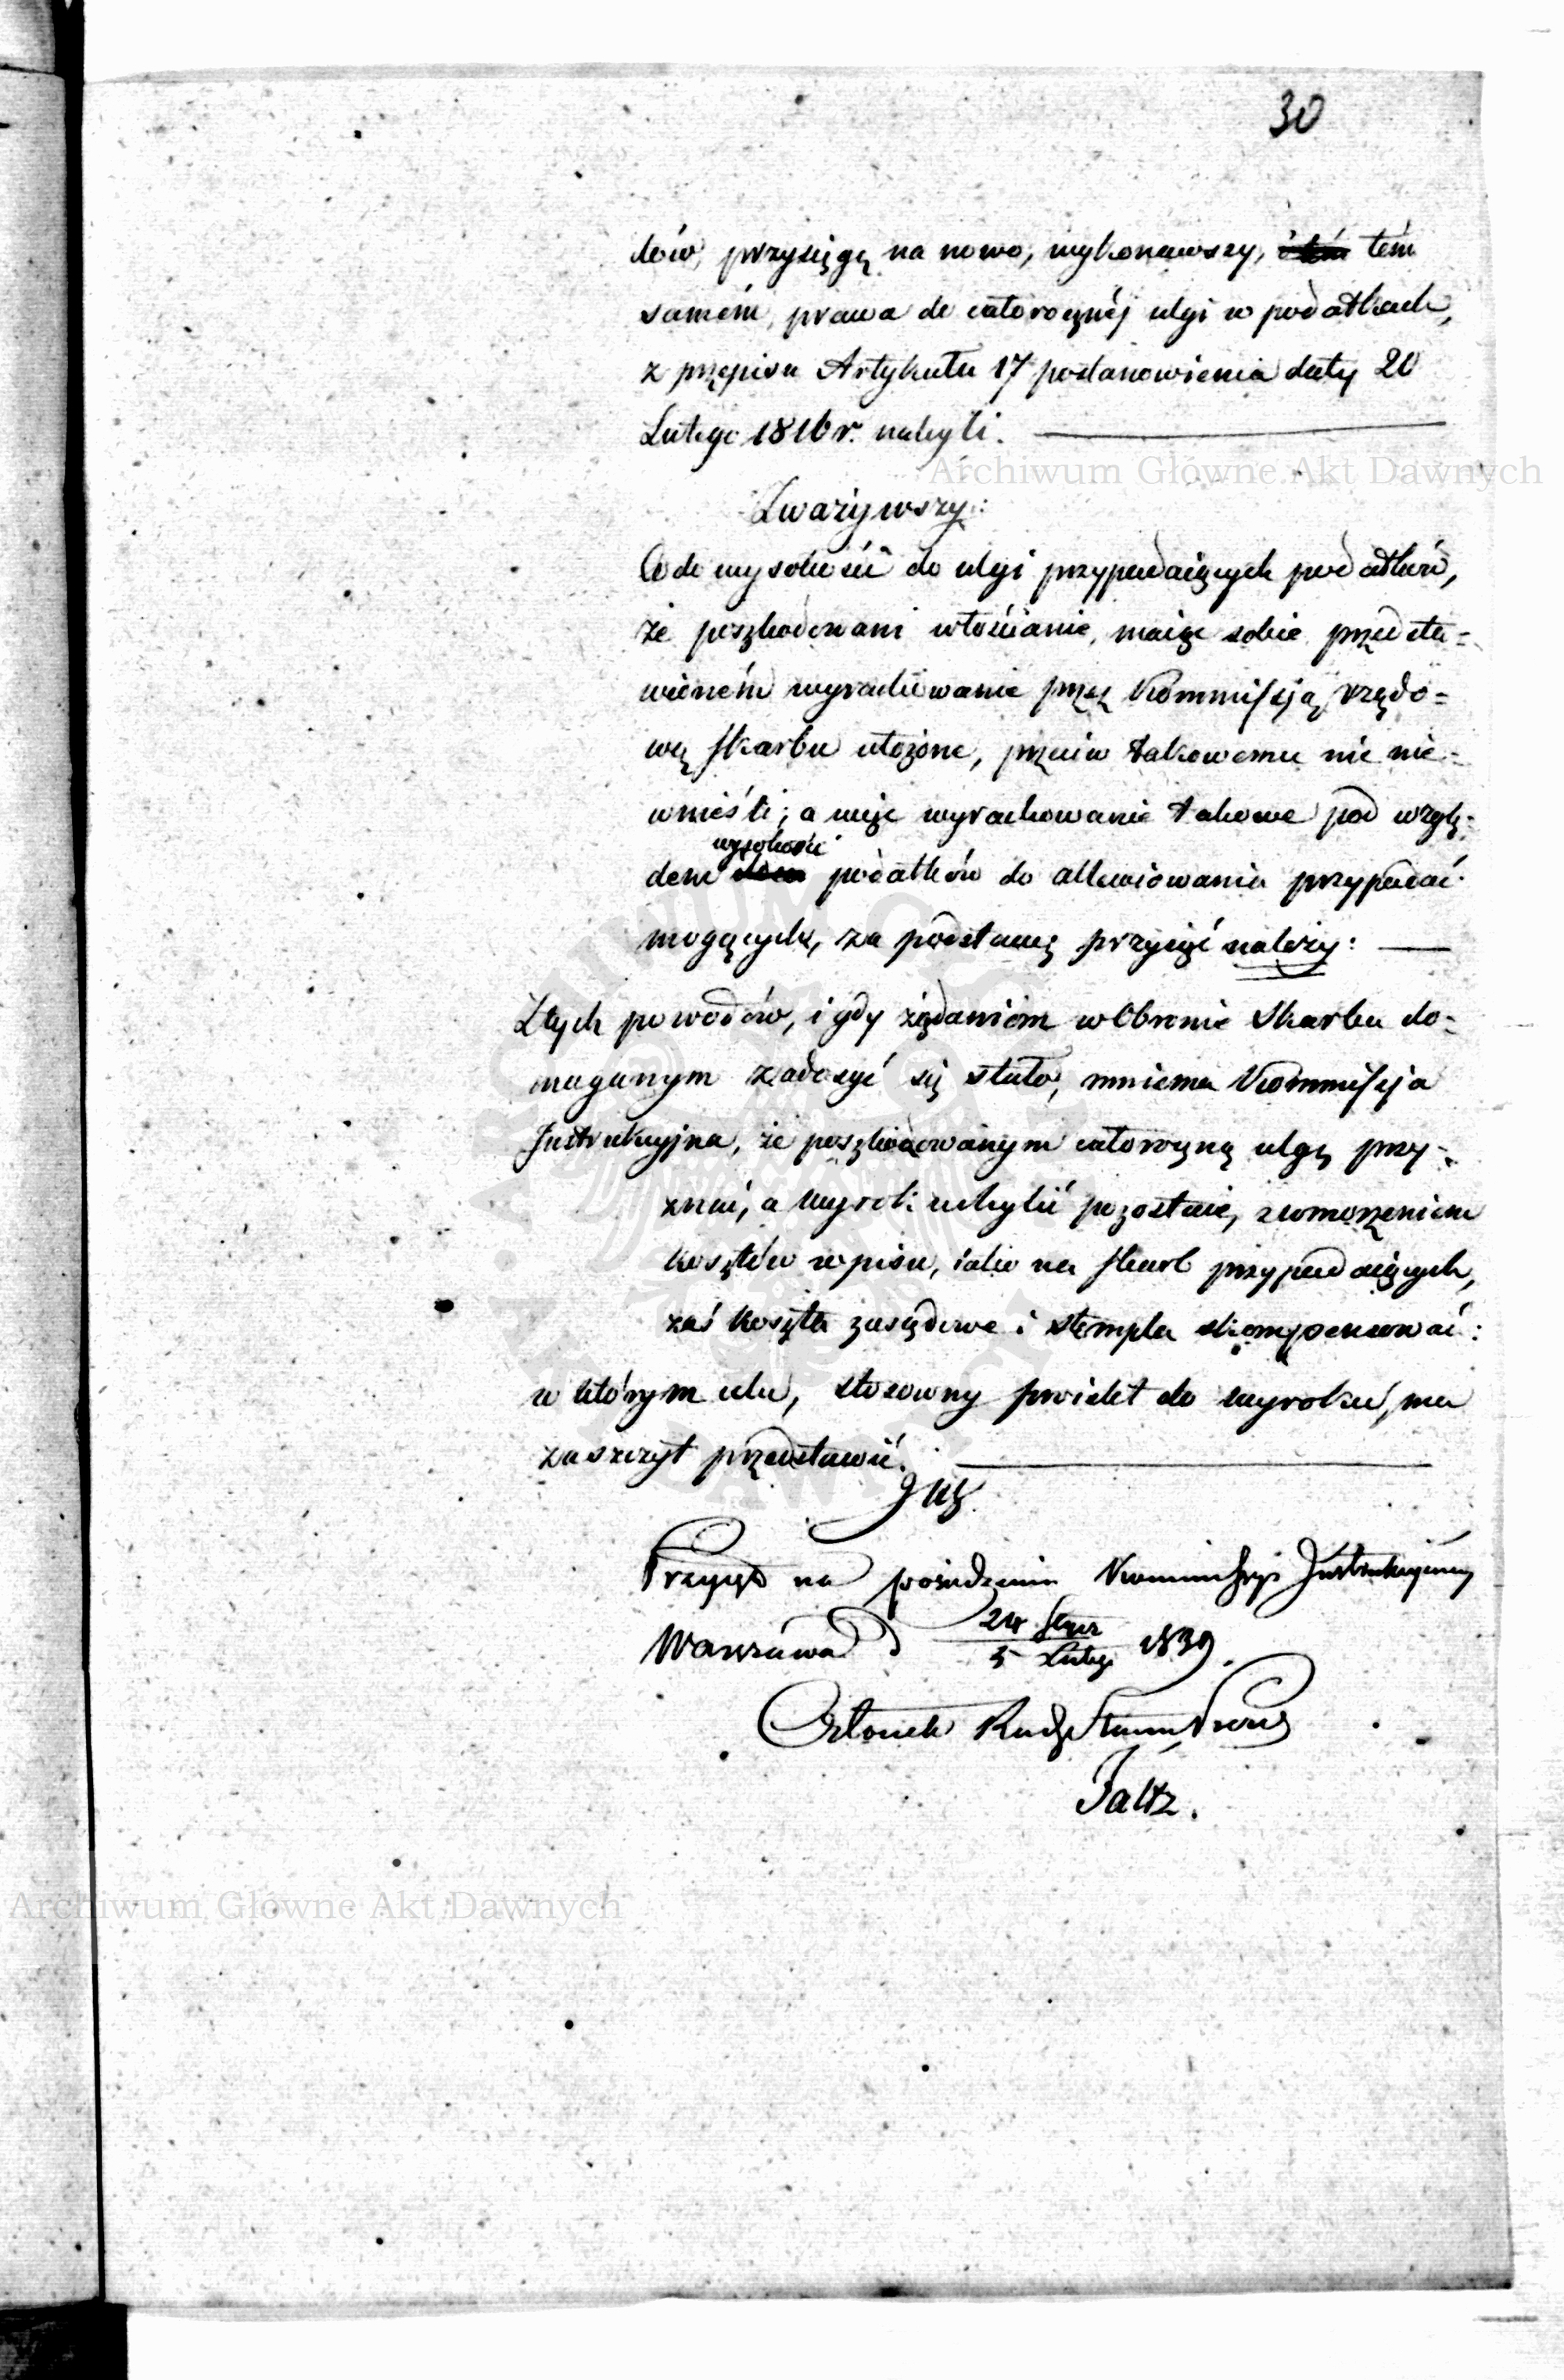 30
dów, przysięgę na nowo, wykonawszy, tém
samém, prawa do całorocznéj ulgi w podatkach,
z przepisu Artykułu 17 postanowienia daty 20
Lutego 1816 r. nabyli.
Archiwum Główne Akt Dawnych
Zważywszy:
Co do wysokości do ulgi przypadaiących podatków,
że poszkodowani włościanie, maiąc sobie przedsta=
wioném wyrachowanie przez Kommissją rządo=
wą skarbu ułożone, przeciw takowemu nic nie
wnieśli; a więc wyrachowanie takowe pod wzglę=
wysokości
dem podatków do allewiowania przypadać
mogących, za podstawę przyiąć należy:
Z tych powodów, i gdy żądaniom w Obronie Skarbu do=
maganym zadosyć się stało, mniema Kommissja
Instrukcyjna, że poszkodowanym całoroczną ulgę przy=
znać, a wyrok uchylić pozostaie, z umorzeniem
kosztów wpisu, iako na skarb przypadaiących,
zaś koszta zasądowe i stempla skompensować:
w którym celu, stosowny proiekt do wyroku, ma
zaszczyt przedstawić.
Przyięto na posiedzeniu Kommissyi Instrukcyjney
Warszawa d 24 Stycz
5 Lutego 1839.
Członek Rady Stanu
Faltz.
Archiwum Główne Akt Dawnych